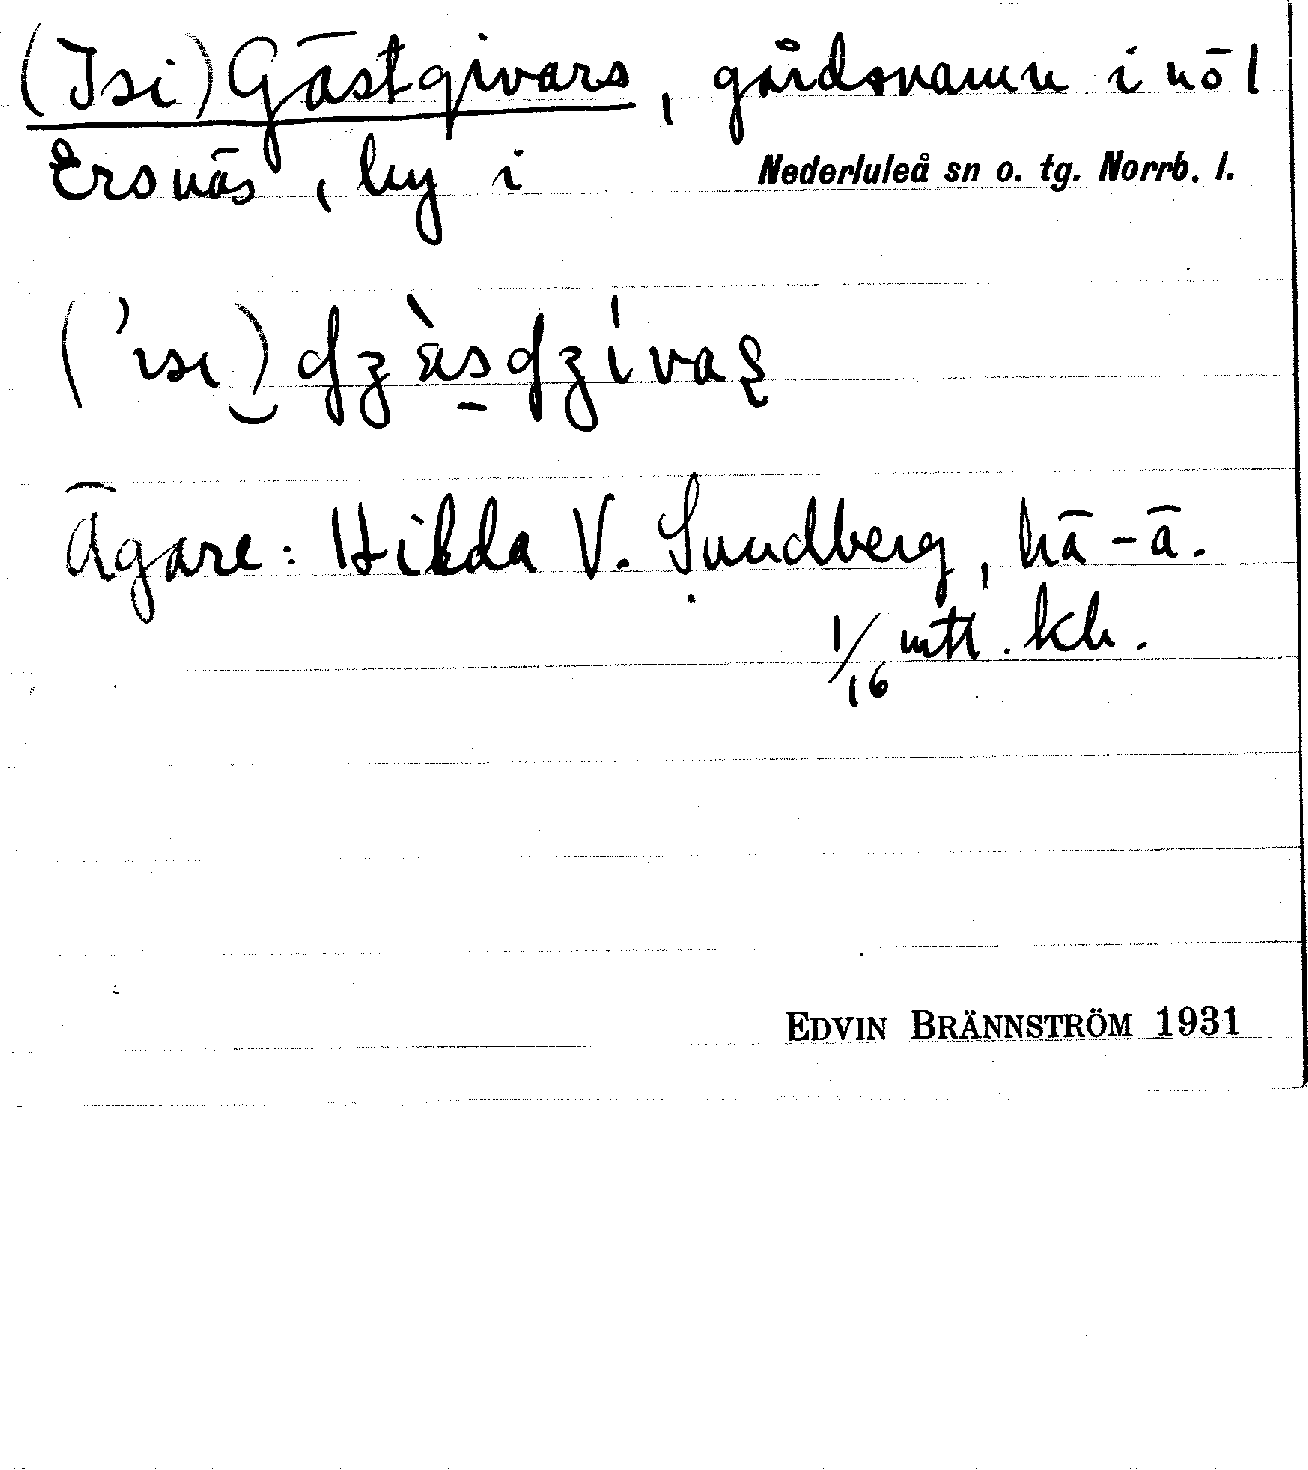 (Isi) Gästgivars, gårdsnamn i nö l
Ersnäs, by i Nederluleå sn o. tg. Norrb. l.
Ägare: Hilda V. Sundberg, hä-ä.
1/16 mtl. kh.
EDVIN BRÄNNSTRÖM 1931